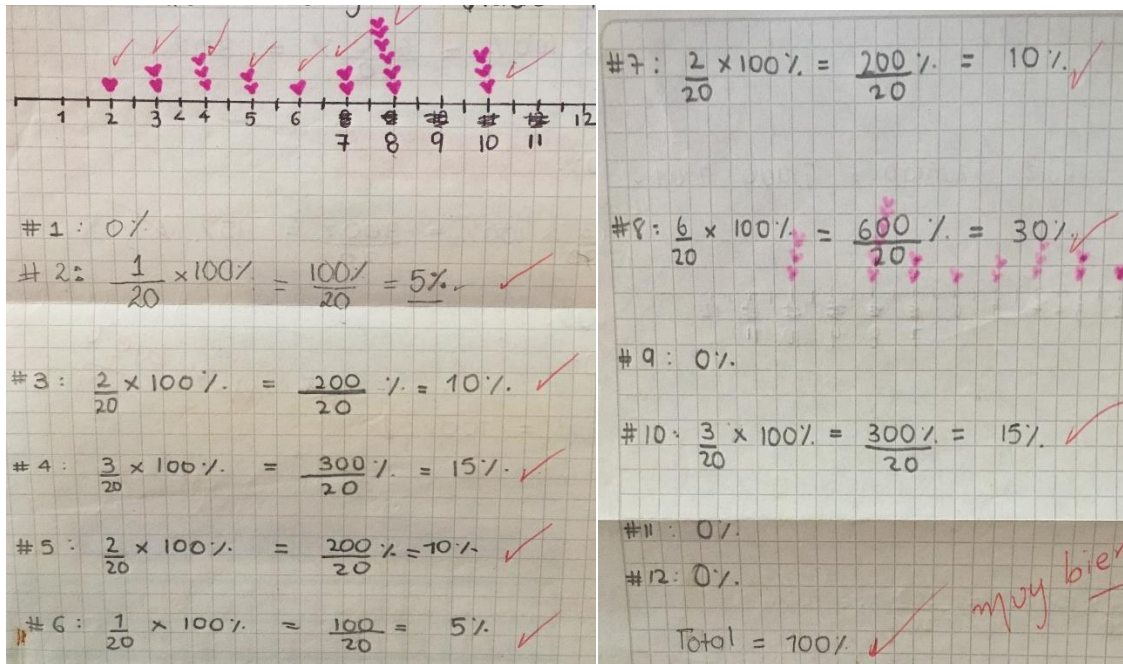 1 2 3 4 5 6 7 8 9 10 11 12
#1: 0%
#2: 1/20 × 100% = 100%/20 = 5%.
#3: 2/20 × 100% = 200/20 % = 10%.
#4: 3/20 × 100% = 300/20 % = 15%.
#5: 2/20 × 100% = 200/20 % = 10%.
#6: 1/20 × 100% = 100/20 = 5%
#7: 2/20 × 100% = 200/20 % = 10%
#8: 6/20 × 100% = 600/20 % = 30%
#9: 0%.
#10: 3/20 × 100% = 300%/20 = 15%.
#11: 0%.
#12: 0%.
Total = 100%
muy bien